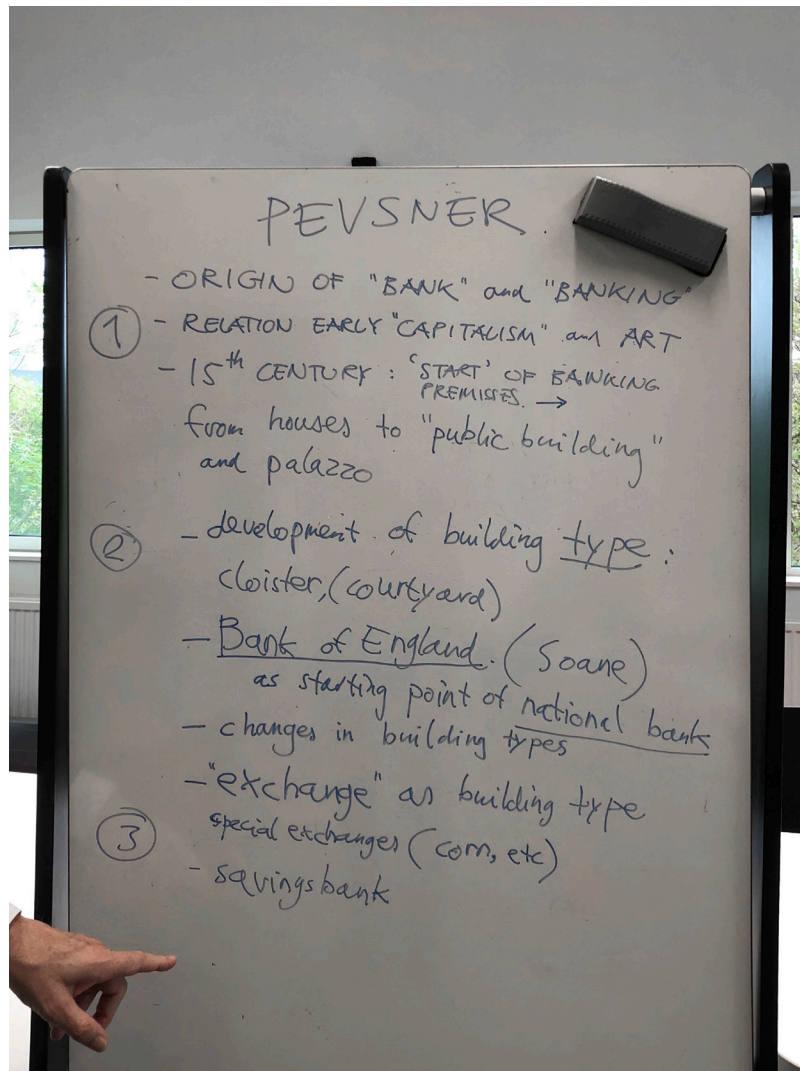 PEVSNER.
- ORIGIN OF "BANK" and "BANKING"
① - RELATION EARLY "CAPITALISM" and ART
- 15th CENTURY : 'START' OF BANKING
PREMISSES. →
from houses to "public building"
and palazzo
② - development of building type :
cloister, (courtyard)
- Bank of England. (Soane)
as starting point of national bank
- changes in building types
- "exchange" as building type
③ special exchanges (corn, etc)
- savingsbank